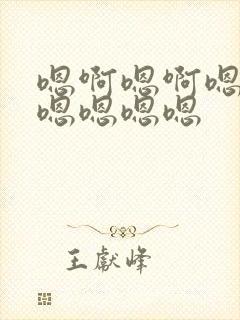 嗯啊嗯啊嗯
嗯嗯嗯嗯
王獻峰